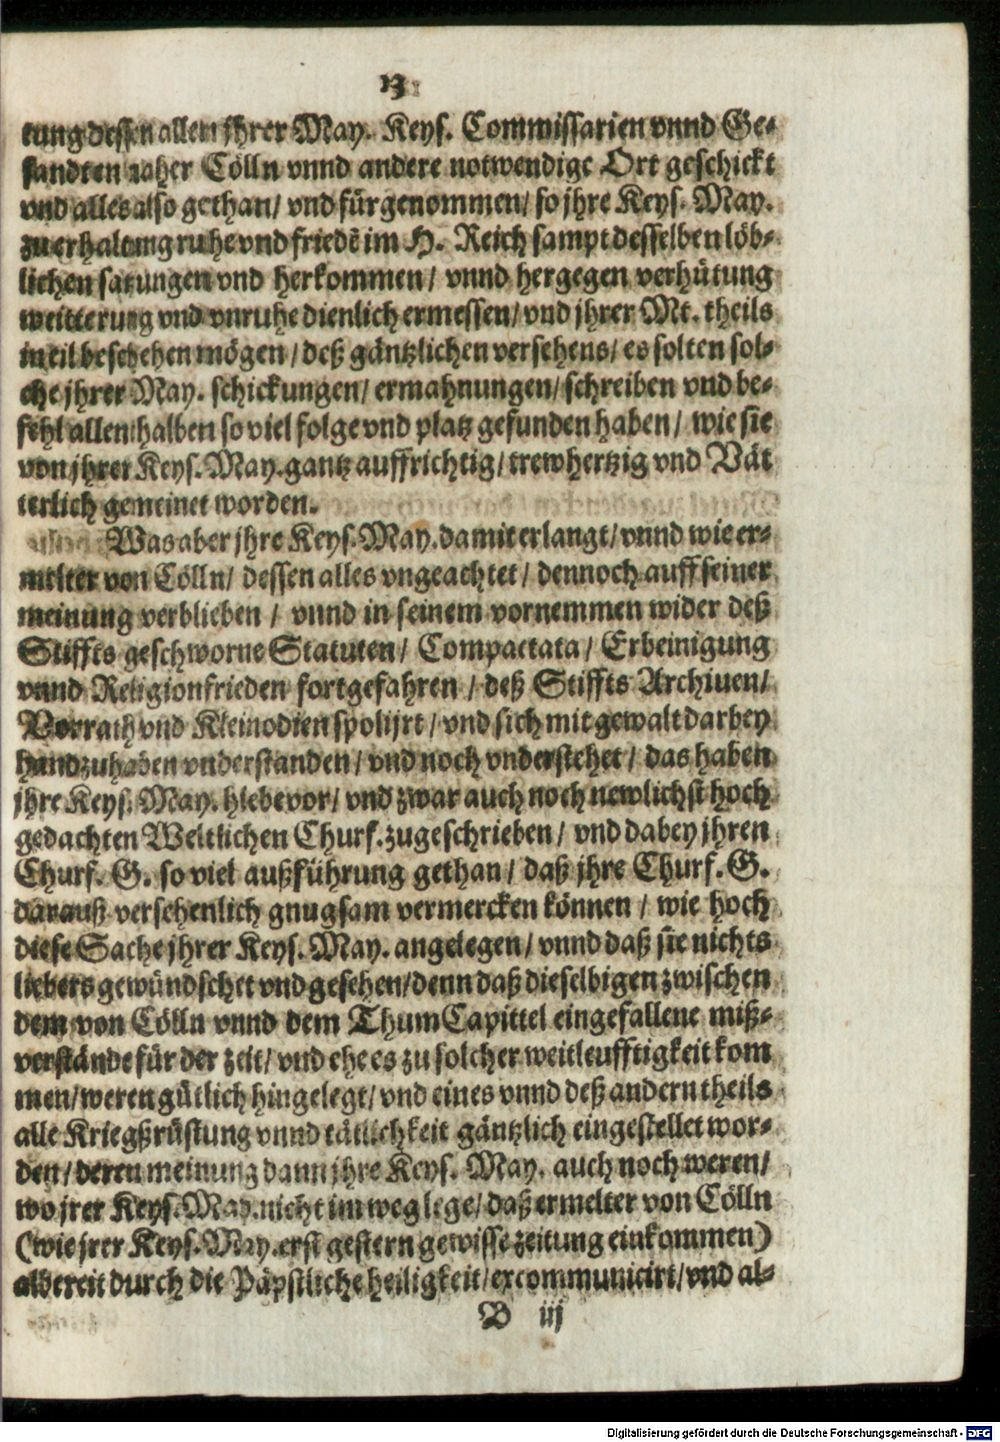 13
tung dessen allen jhrer May. Keys. Commissarien vnnd Ge-
sandten naher Cölln vnnd andere notwendige Ort geschickt
vnd alles also gethan/ vnd fürgenommen/ so jhre Keys. May.
zu erhaltung ruhe vnd friedẽ im H. Reich sampt desselben löb-
lichen satzungen vnd herkommen/ vnnd hergegen verhütung
weitterung vnd vnruhe dienlich ermessen/ vnd jhrer Mt. theils
in eil beschehen mögen/ deß gäntzlichen versehens/ es solten sol-
che jhrer May. schickungen/ ermahnungen/ schreiben vnd be-
fehl allenthalben so viel folge vnd platz gefunden haben/ wie sie
von jhrer Keys. May. gantz auffrichtig/ trewhertzig vnd Vät
terlich gemeinet worden.
Was aber jhre Keys. May. damit erlangt/ vnnd wie er-
melter von Cölln/ dessen alles vngeachtet/ dennoch auff seiner
meinung verblieben/ vnnd in seinem vornemmen wider deß
Stiffts geschworne Statuten/ Compactata/ Erbeinigung
vnnd Religionfrieden fortgefahren/ deß Stiffts Archiuen/
Vorrath vnd Kleinodien spolijrt/ vnd sich mit gewalt darbey
handzuhaben vnderstanden/ vnd noch vnderstehet/ das haben
jhre Keys. May. hiebevor/ vnd zwar auch noch newlichst hoch
gedachten Weltlichen Churf. zugeschrieben/ vnd dabey jhren
Churf. G. so viel außführung gethan/ daß jhre Churf. G.
darauß versehenlich gnugsam vermercken können/ wie hoch
diese Sache jhrer Keys. May. angelegen/ vnnd daß sie nichts
liebers gewündschet vnd gesehen/ denn daß dieselbigen zwischen
dem von Cölln vnnd dem ThumCapittel eingefallene miß-
verstände für der zeit/ vnd ehe es zu solcher weitleufftigkeit kom
men/ weren gütlich hingelegt/ vnd eines vnnd deß andern theils
alle Kriegßrüstung vnnd tätlichkeit gäntzlich eingestellet wor-
den/ deren meinung dann jhre Keys. May. auch noch weren/
wo jrer Keys. May. nicht im weg lege/ daß ermelter von Cölln
(wie jrer Keys. May. erst gestern gewisse zeitung einkommen)
albereit durch die Päpstliche heiligkeit/ excommunicirt/ vnd al-
B iij
Digitalisierung gefördert durch die Deutsche Forschungsgemeinschaft - DFG